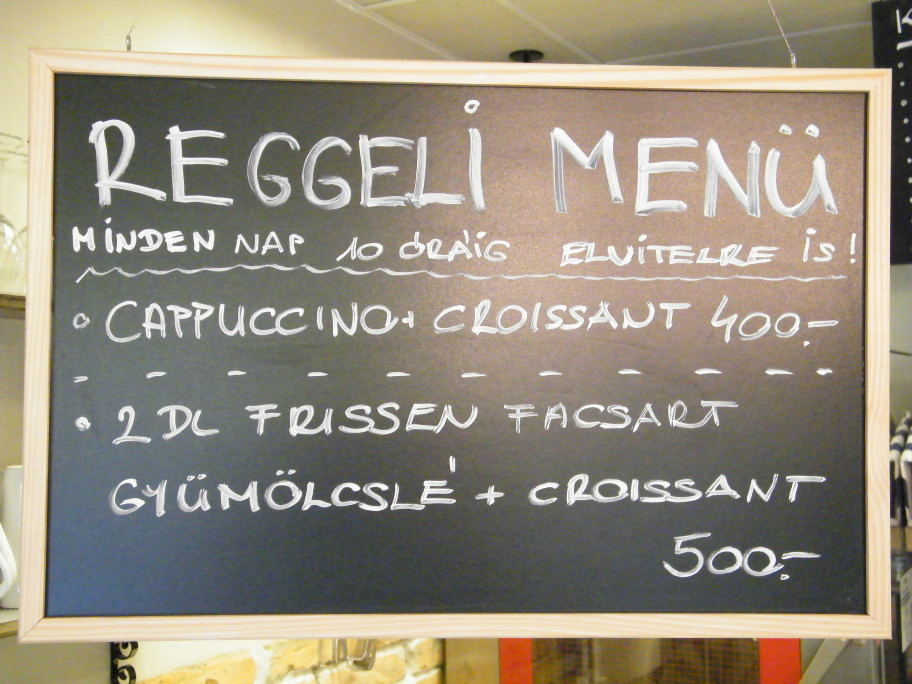 REGGELI MENÜ
MINDEN NAP 10 ÓRÁIG ELVITELRE IS!
CAPPUCCINO + CROISSANT 400.-
2 DL FRISSEN FACSART
GYÜMÖLCSLÉ + CROISSANT
500.-